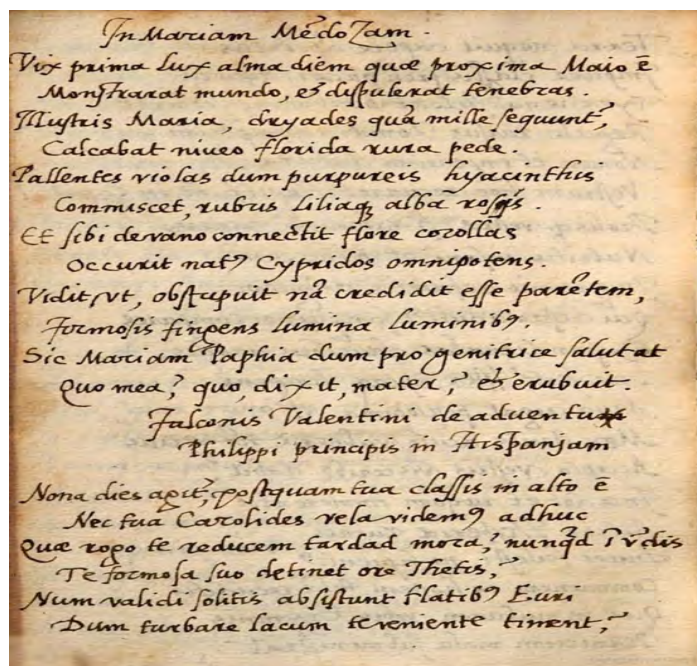 In Mariam Mẽdozam.
Vix prima lux alma diem quæ proxima Maio ẽ
Monstrarat mundo, & dispulerat tenebras.
Illustris Maria, dryades quã mille sequunt᷑,
Calcabat niveo florida rura pede.
Pallentes violas dum purpureis hyacinthis
Commiscet, rubris liliaq; alba rosis.
Et sibi de vano connectit flore corollas
Occurit natꝰ Cypridos omnipotens.
Vidit, ut, obstupuit nã credidit esse parẽtem,
Formosis fingens lumina luminibꝰ.
Sic Mariam Paphia dum pro genitrice salutat
Quo mea? quo, dixit, mater? & erubuit.
Falconis Valentini de adventu
Philippi principis in Hispaniam
Nona dies agit᷑, postquam tua classis in alto ẽ
Nec tua Carolides vela videmꝰ adhuc
Quæ rogo te reducem tardad mora? nunq̃d ĩ
Te formosa suo detinet ore Thetis?
Num validi solitis absistunt flatibꝰ Euri
Dum turbare lacum te veniente timent?